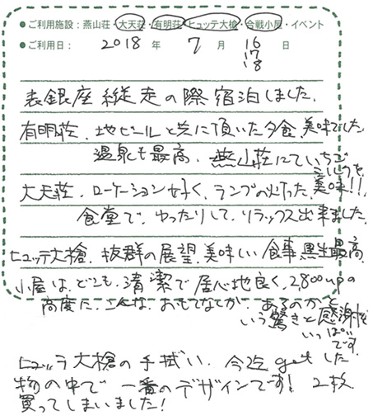 ●ご利用施設:燕山荘・大天荘・有明荘・ヒュッテ大槍・合戦小屋・イベント
●ご利用日: 2018 年 7 月 16 日
17
18
表銀座縦走の際宿泊しました。
有明荘、地ビールと共に頂いた夕食美味でした。
温泉も最高、燕山荘にていちご
ミルクを
美味!!
大天荘、ロケーション好く、ランプの灯った
食堂で、ゆったりして、リラックス出来ました。
ヒュッテ大槍、抜群の展望、美味しい食事 最高
小屋は、どこも、清潔で居心地良く、2800mの
高度に、こんな、おもてなしが、あるのかと
いう驚きと感謝で
いっぱい
です。
ヒュッテ大槍の手拭い、今迄getした
物の中で一番のデザインです! 2枚
買ってしまいました!